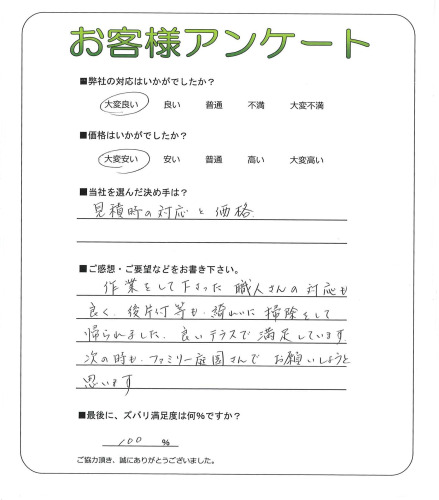 お客様アンケート
■弊社の対応はいかがでしたか?
大変良い 良い 普通 不満 大変不満
■価格はいかがでしたか?
大変安い 安い 普通 高い 大変高い
■当社を選んだ決め手は?
見積時の対応と価格
■ご感想・ご要望などをお書き下さい。
作業をして下さった職人さんの対応も
良く、後片付等も、綺れいに掃除をして
帰られました。良いテラスで満足しています
次の時も、ファミリー庭園さんでお願いしようと
思います
■最後に、ズバリ満足度は何%ですか?
100 %
ご協力頂き、誠にありがとうございました。